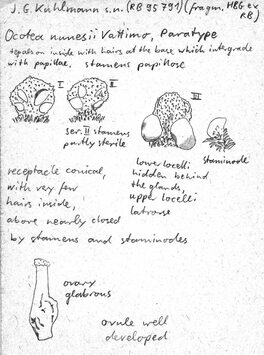 J. G. Kuhlmann s.n. (RB 95791) (fragm. HBG ex RB)
Ocotea nunesii Vattimo, Paratype
tepals on inside with hairs at the base which intergrade
with papillae. stamens papillose
I
II
III
ser. III stamens
partly sterile
lower locelli
hidden behind
the glands,
upper locelli
latrorse
staminode
receptacle conical,
with very few
hairs inside,
above nearly closed
by stamens and staminodes
ovary
glabrous
ovule well
developed